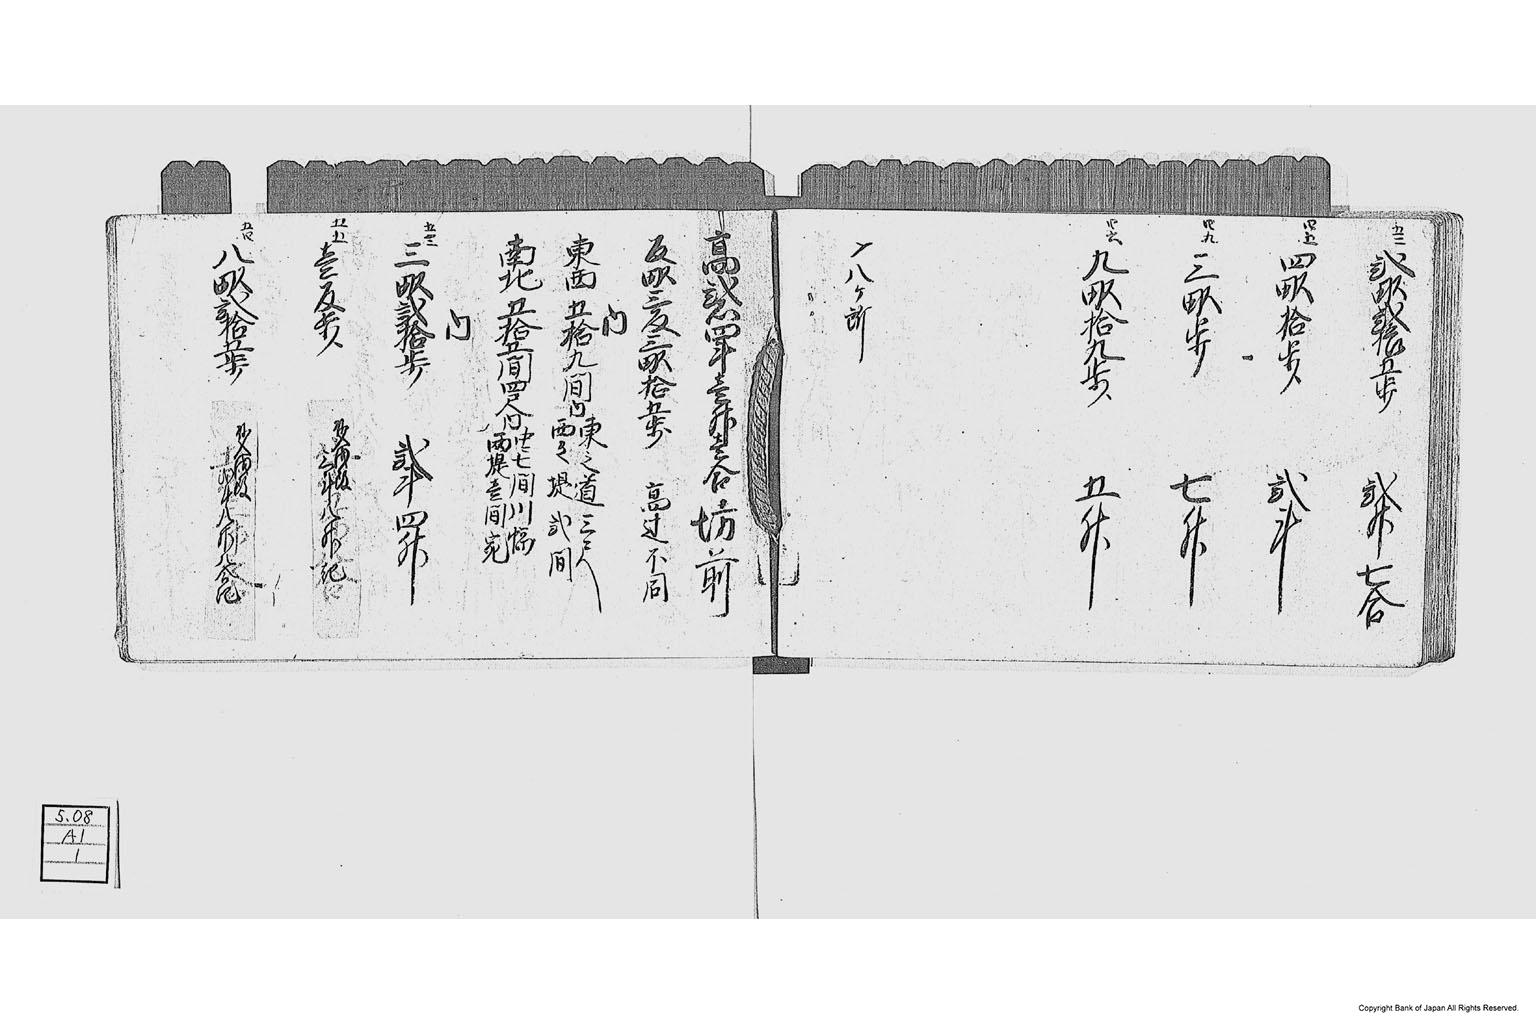 五二
弐畝弐拾五歩 弐升七合
四五
四畝拾歩 弐斗
四九
三畝歩 七升
四六
九畝拾九歩 五升
〆八ケ所
高弐石四斗壱升壱合 坊前
反畝三反三畝拾五歩 高辻不同
内
東西 五拾九間内 東之道三尺
西之堤弐間
南北 五拾五間四尺内 中七間川幅
両堤壱間宛
内
五三
三畝弐拾歩 弐斗四升
五五
壱反歩
五四
八畝弐拾五歩
5.08
A1
1
Copyright Bank of Japan All Rights Reserved.